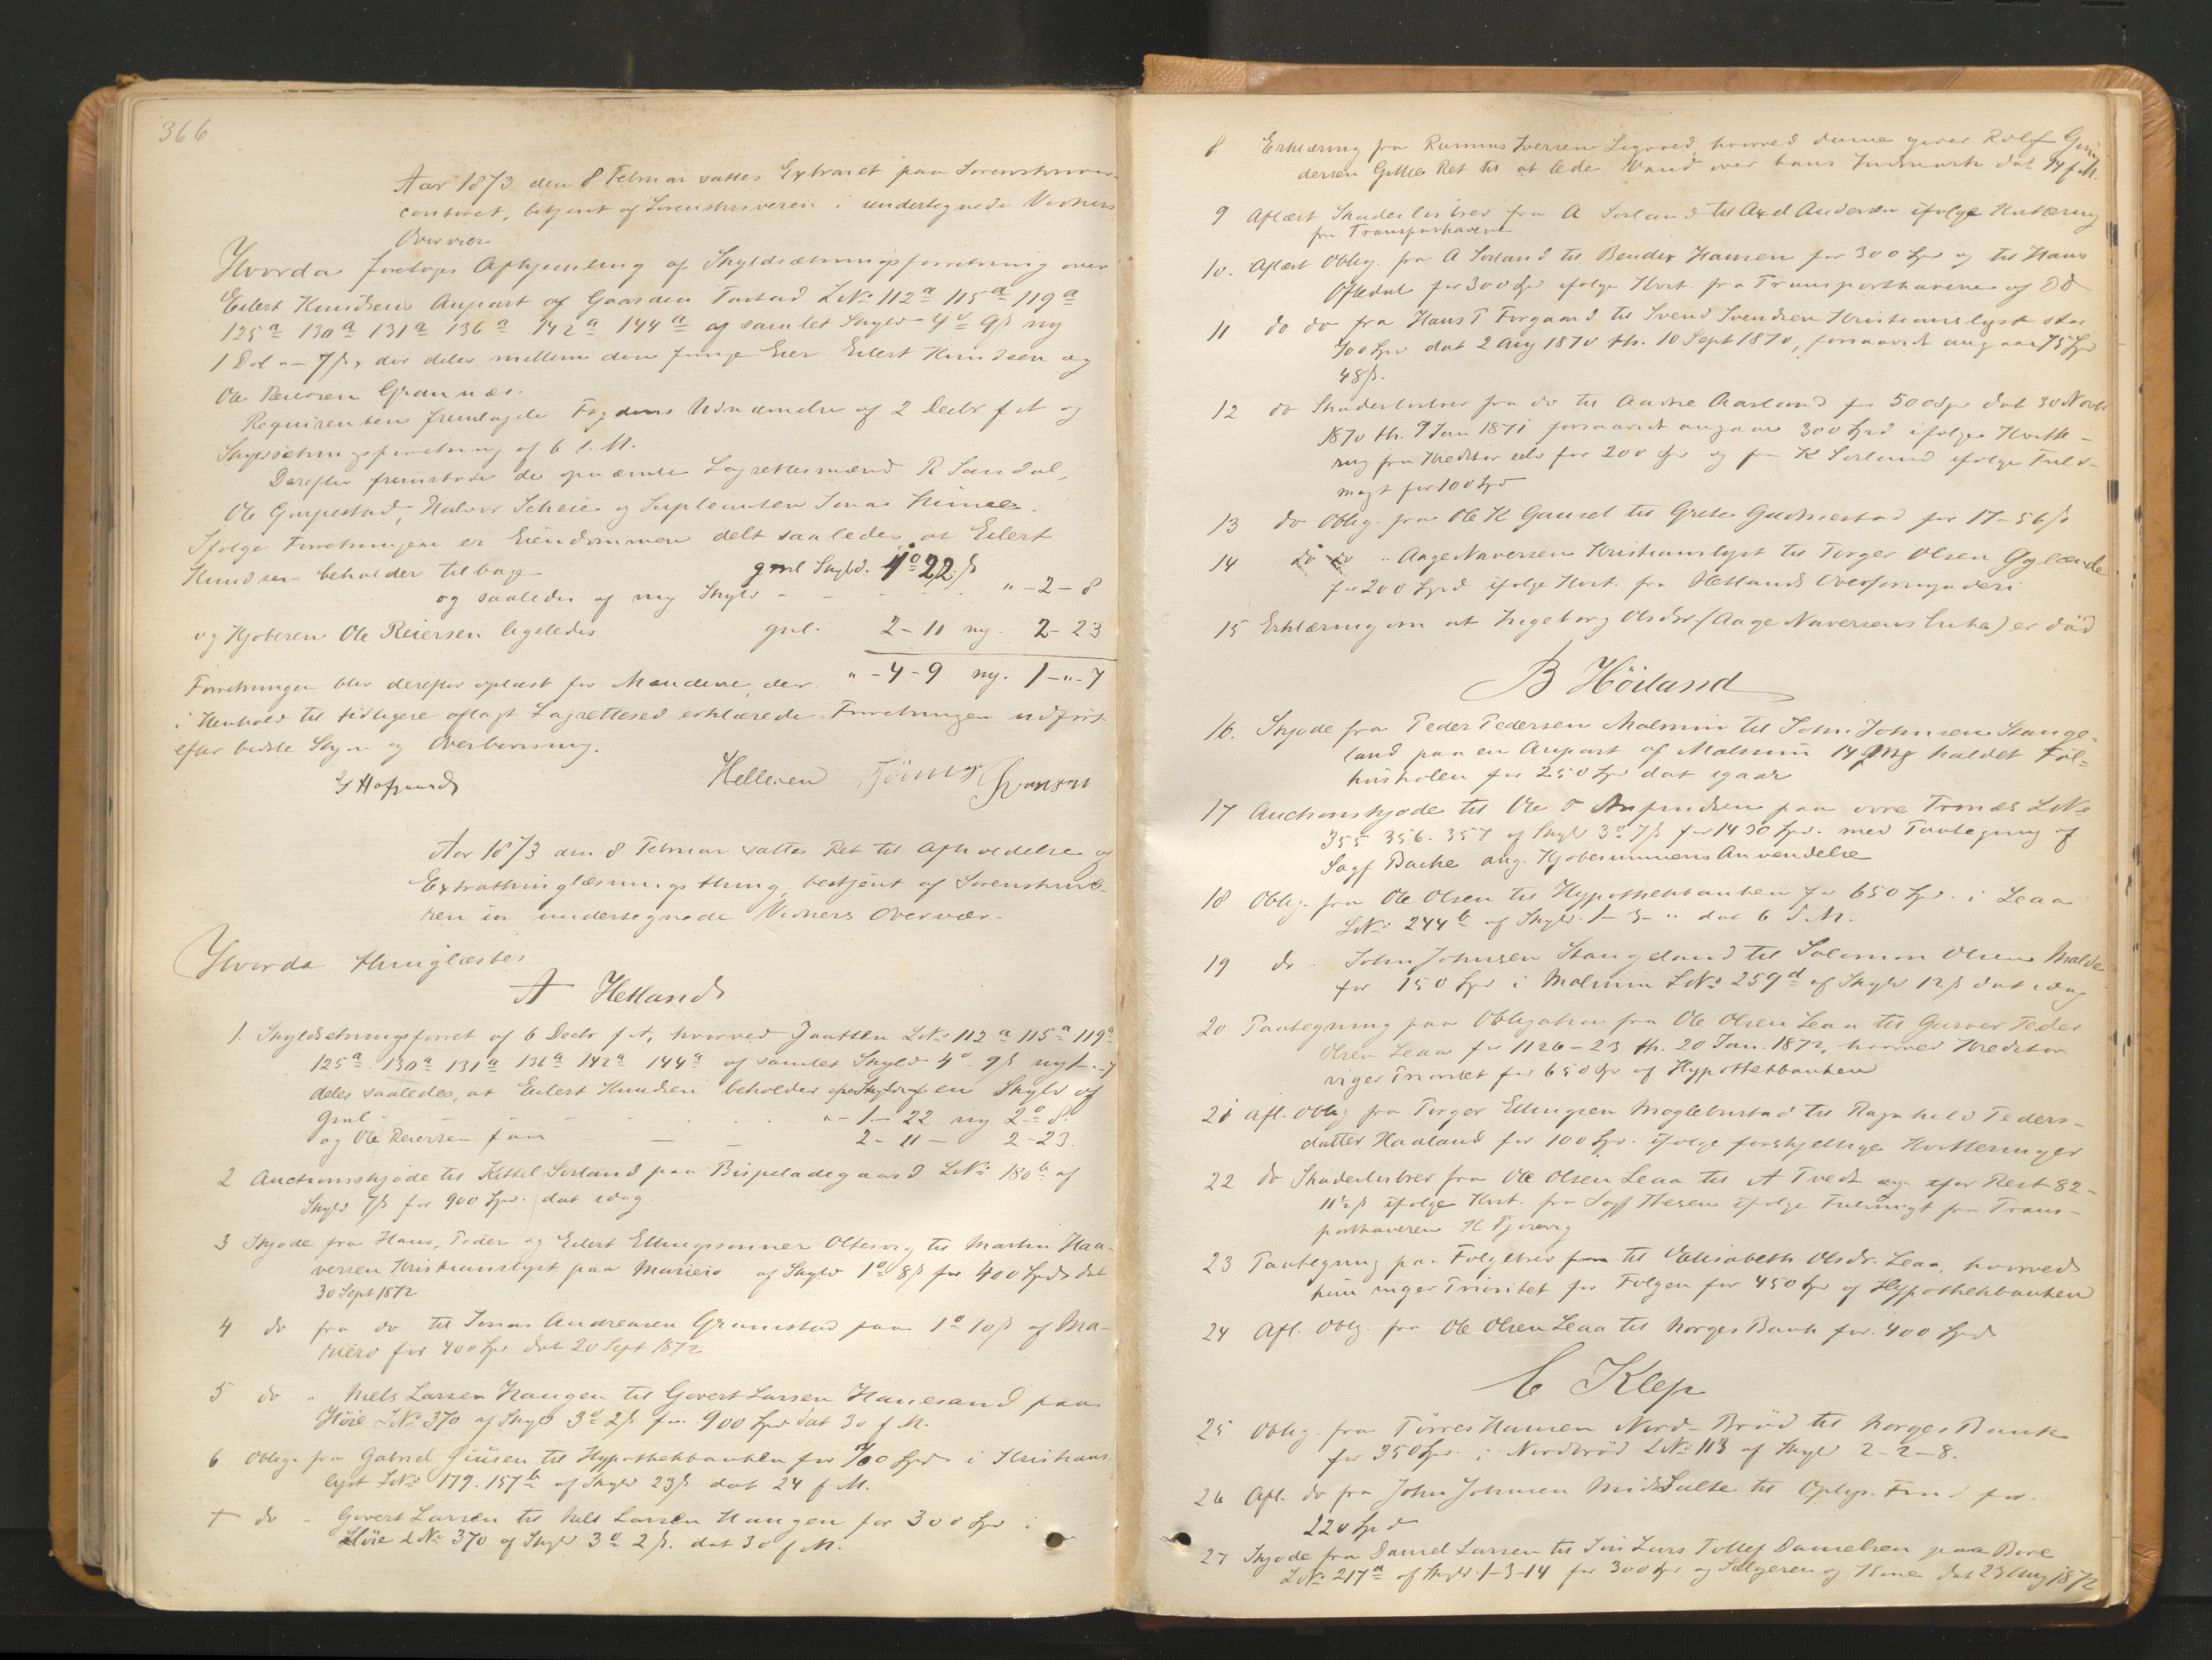 366
Aar 1873 den 8 Februar sattes Extraret paa Sorenskriver-
contoret, betjent af Sorenskriveren i undertegnede Vidners
Overvær
Hvorda foretoges Afhjemling af Skyldsætningsforretning over
Eilert Knudsens Anpart af Gaarden Tastad LNo 112a 115a 119a
125a 130a 131a 136a 142a 144a af samlet Skyld 4d 9s ny
1 Dal " - 7s, der deles mellem den Eier Eilert Knudsen og
Ole Reiersen Grannæs.
Requirenten fremlagde Fogdens Udnævnelse af 2 Decbr f A og
Skyldsætningsforretning af 6 s. M.
Derefter fremstode de opnævnte Lagrettesmænd R Sandal,
Ole Garpestad, Halvor Scheie og Supleanten Jonas
Ifølge Forretningen er Eiendommen delt saaledes, at Eilert
Knudsen beholder tilbage gml Skyld. 1o 22s
og saaledes af ny Skyld - - - - " - 2 - 8
og Kjøberen Ole Reiersen ligeledes gml. 2 - 11 ny. 2 - 23
" - 4 - 9 ny. 1 - " - 7
Forretningen blev derefter oplæst for Mændene, der
i Henhold til tidligere aflagt Lagretteseed erklærede Forretningen udført
efter bedste Skjøn og Overbevisning.
Hellesen
Aar 1873 den 8 Februar sattes Ret til Afholdelse af
Extrathinglæsningsthing, betjent af Sorenskrive-
ren i undertegnede Vidners Overvær.
Hvorda thinglæstes
A Hetland
1. Skyldsetningsforret af 6 Decbr f A, hvorved Jaatten LNo 112a 115a 119a
125a 130a 131a 136a 142a 144a af samlet Skyld 4o 9s ny 1 - " - 7
deles saaledes, at Eilert Knudsen beholder en Skyld af
gml - - - - " - 1 - 22 ny 2o 8s
og Ole Reiersen faar - - 2 - 11 - 2 - 23.
2 Auctionsskjøde til Kittel Sørland paa Bispeladegaard LNo 180b af
Skyld 7s for 900 Spd. dat idag
3 Skjøde fra Hans, Peder og Eilert Ellingssønner Oltesvig til Martin Haa-
versen Kristianslyst paa Mariero af Skyld 1o 8s for 400 Spd dat
30 Sept 1872
4 do fra do til Jonas Andreasen Gramstad paa 1o 10s af Ma-
riero for 400 Spd dat 20 Sept 1872
5 do " Niels Larsen Haugen til Govert Larsen Hanesand paa
Høie LNo 370 af Skyld 3d 2s for 900 Spd dat 30 f M.
6 Oblig. fra Gabriel til Hypothekbanken for 700 Spd i Kristians-
lyst LNo 179. 157b af Skyld 23s dat 24 f M.
7 do " Govert Larsen til Niels Larsen Haugen for 300 Spd i
Høie LNo 370 af Skyld 3d 2s. dat 30 f M.
8 Erklæring fra Rasmus Iversen hvorved denne giver Rolf
dersen Gilje Ret til at lede Vand over hans Indmark dat 14 f M.
9 Aflæst Skadeslosbrev fra A Sorland til Axel Andersen ifølge Kvittering
fra Transporthaveren
10. Aflæst Oblig. fra A Sorland til Bendix Hansen for 300 Spd og til Hans
Oftedal for 300 Spd ifølge Kvit. fra Transporthaverne af DD
11 do do fra Hans T Forgaard til Svend Svendsen Kristianslyst stor
700 Spd dat 2 Aug 1870 th. 10 Sept 1870, forsaavidt angaar 75 Spd
48s.
12 do Skadeslosbrev fra do til Aadne Aarland for 500 Spd dat 30 Novbr
1870 th. 9 Jan 1871 forsaavidt angaar 300 Spd ifølge Kvitte-
ring fra Kreditor selv for 200 Spd og fra K Sorland ifølge Fuld-
magt for 100 Spd
13 do Oblig. fra Ole K Gausel til Grete Gudmestad for 17 - 56s
14 do do " Aage Naversen Kristianslyst til Torger Olsen
for 200 Spd ifølge Kvit. fra Hetlands Overformynderi
15 Erklæring om at Ingeborg Olsdtr (Aage Naversens Enke) er død
B Höiland
16. Skjøde fra Peder Pedersen Malmin til John Johnsen Stange-
land paa en Anpart af Malmin 14 Mg kaldet
for 250 Spd dat igaar
17 Auctionskjøde til Ole O paa øvre Tronæs LNo
355 356. 357 af Skyld 3o 7s for 1430 Spd. med Paategning af
Sagf Bache ang. Kjøbesummens Anvendelse
18 Oblig. fra Ole Olsen til Hypothekbanken for 650 Spd. i Leaa
LNo 244b af Skyld 1 - 3 - " dat 6 d. M.
19 do " John Johnsen Stangeland til Salomon Olsen Malde
for 150 Spd i Malmin LNo 259d af Skyld 12s dat idag
20 Paategning paa Obligation fra Ole Olsen Leaa til Garver Peder
Olsen Leaa for 1126 - 23 th. 20 Jan. 1872, hvorved Kreditor
viger Prioritet for 650 Spd af Hypothekbanken
21 Afl. Oblig fra Torger Ellingsen Moglebustad til Ragnhild Peders-
datter Haaland for 100 Spd. ifølge forskjellige Kvitteringer
22 do Skadeslosbrev fra Ole Olsen Leaa til A Tvedt for Rest 82 -
11½s ifølge Kvit. fra Sagf Thesen ifølge Fuldmagt fra Trans-
porthaveren H
23 Paategning paa Folgebrev til Elisabeth Olsdr. Leaa, hvorved
hun viger Prioritet for Folgen for 450 Spd af Hypothekbanken
24 Afl. Oblig. fra Ole Olsen Leaa til Norges Bank for 400 Spd
C Klep
25 Oblig. fra Tørres Hansen Nord-Brød til Norges Bank
for 350 Spd. i Nordbrød LNo 113 af Skyld 2 - 2 - 8.
26 Afl. do fra John Johnsen til Oplys. Fond for
220 Spd
27 Skjøde fra Daniel Larsen til Lars Tollef Danielsen paa Bore
LNo 217a af Skyld 1 - 3 - 14 for 300 Spd og Sælgeren og Kone dat 23 Aug 1872